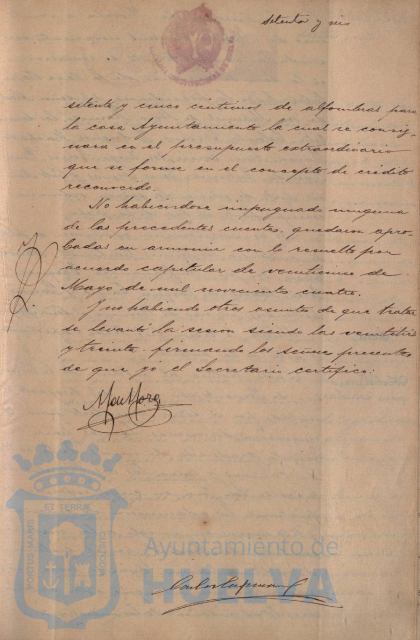 setenta y seis
setenta y cinco centimos de alfombras para
la casa Ayuntamiento la cual se consig-
nará en el presupuesto extraordinario
que se forme en el concepto de crédito
reconocido.
No habiendose impugnado ninguna
de las precedentes cuentas, quedaron apro-
badas en armonia con lo resuelto por
acuerdo capitular de veintiuno de
Mayo, de mil novecientos cuatro.
Y no habiendo otros asuntos de que tratar
se levantó la sesion siendo las veintitres
y treinta firmando los señores presentes
de que yo el Secretario certifico:
PORTUS MARIS
ET TERRAE
CUSTODIA
Ayuntamiento de
HUELVA